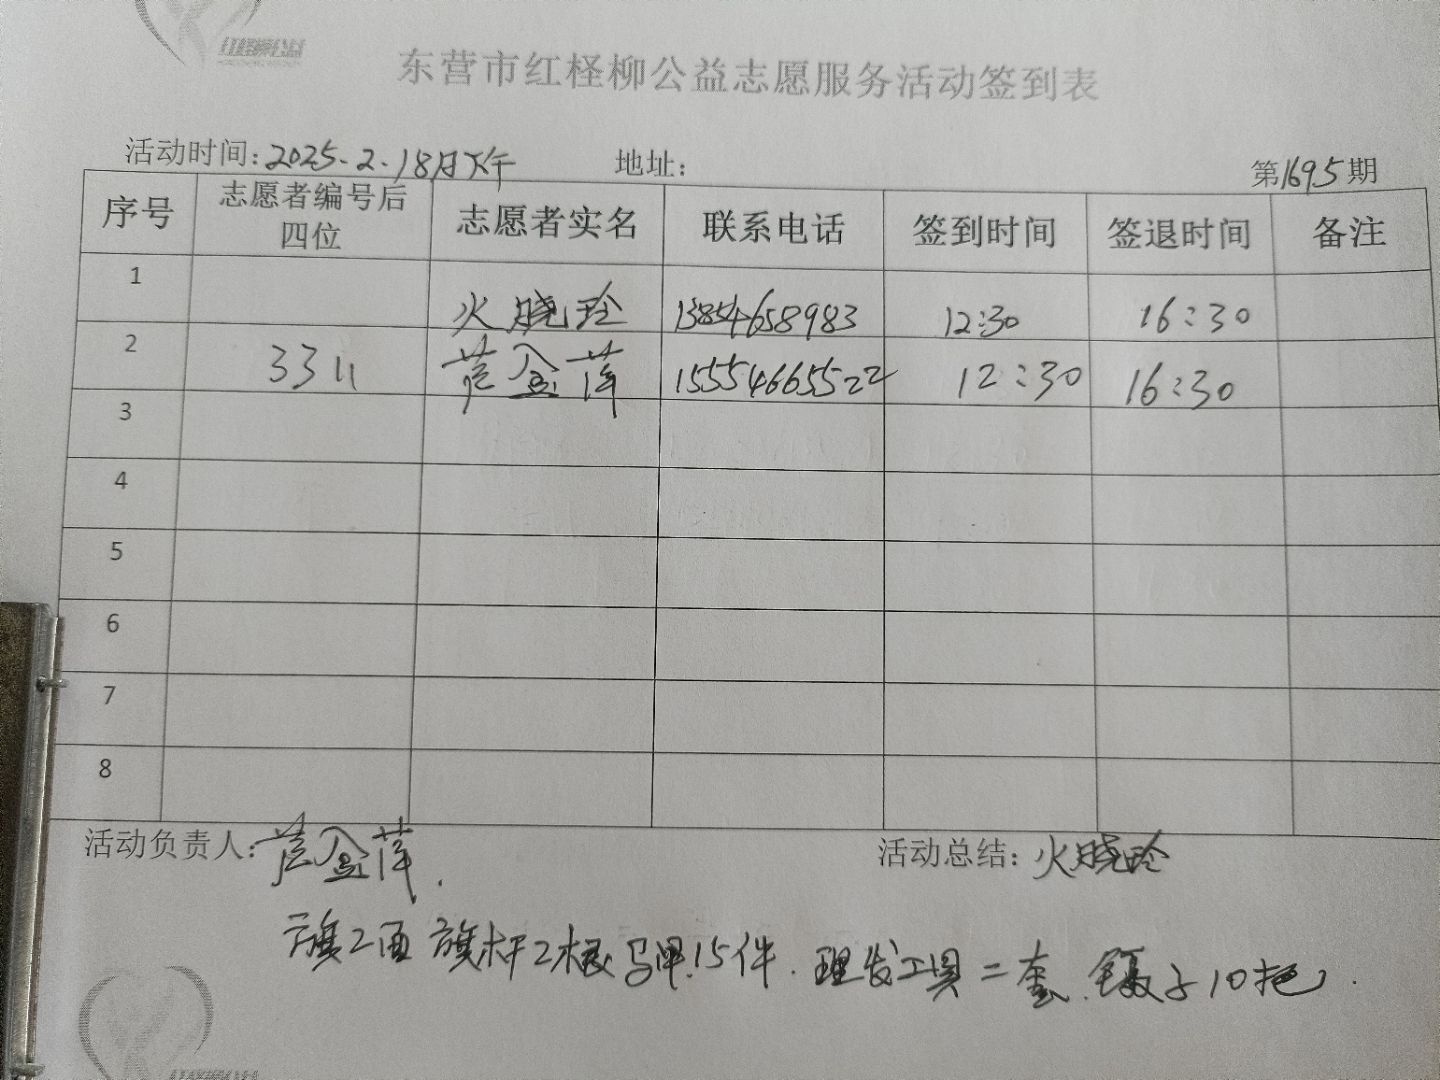 红柽柳公益
东营市红柽柳公益志愿服务活动签到表
活动时间：2025.2.18日下午 地址： 第1695期
序号 志愿者编号后四位 志愿者实名 联系电话 签到时间 签退时间 备注
1 火晓玲 13854658983 12:30 16:30
2 3311 金萍 15554665522 12:30 16:30
3
4
5
6
7
8
活动负责人： 金萍. 活动总结：火晓玲
旗2面 旗杆2根 马甲.15件. 理发工具二套. 镊子10把.
红柽柳公益